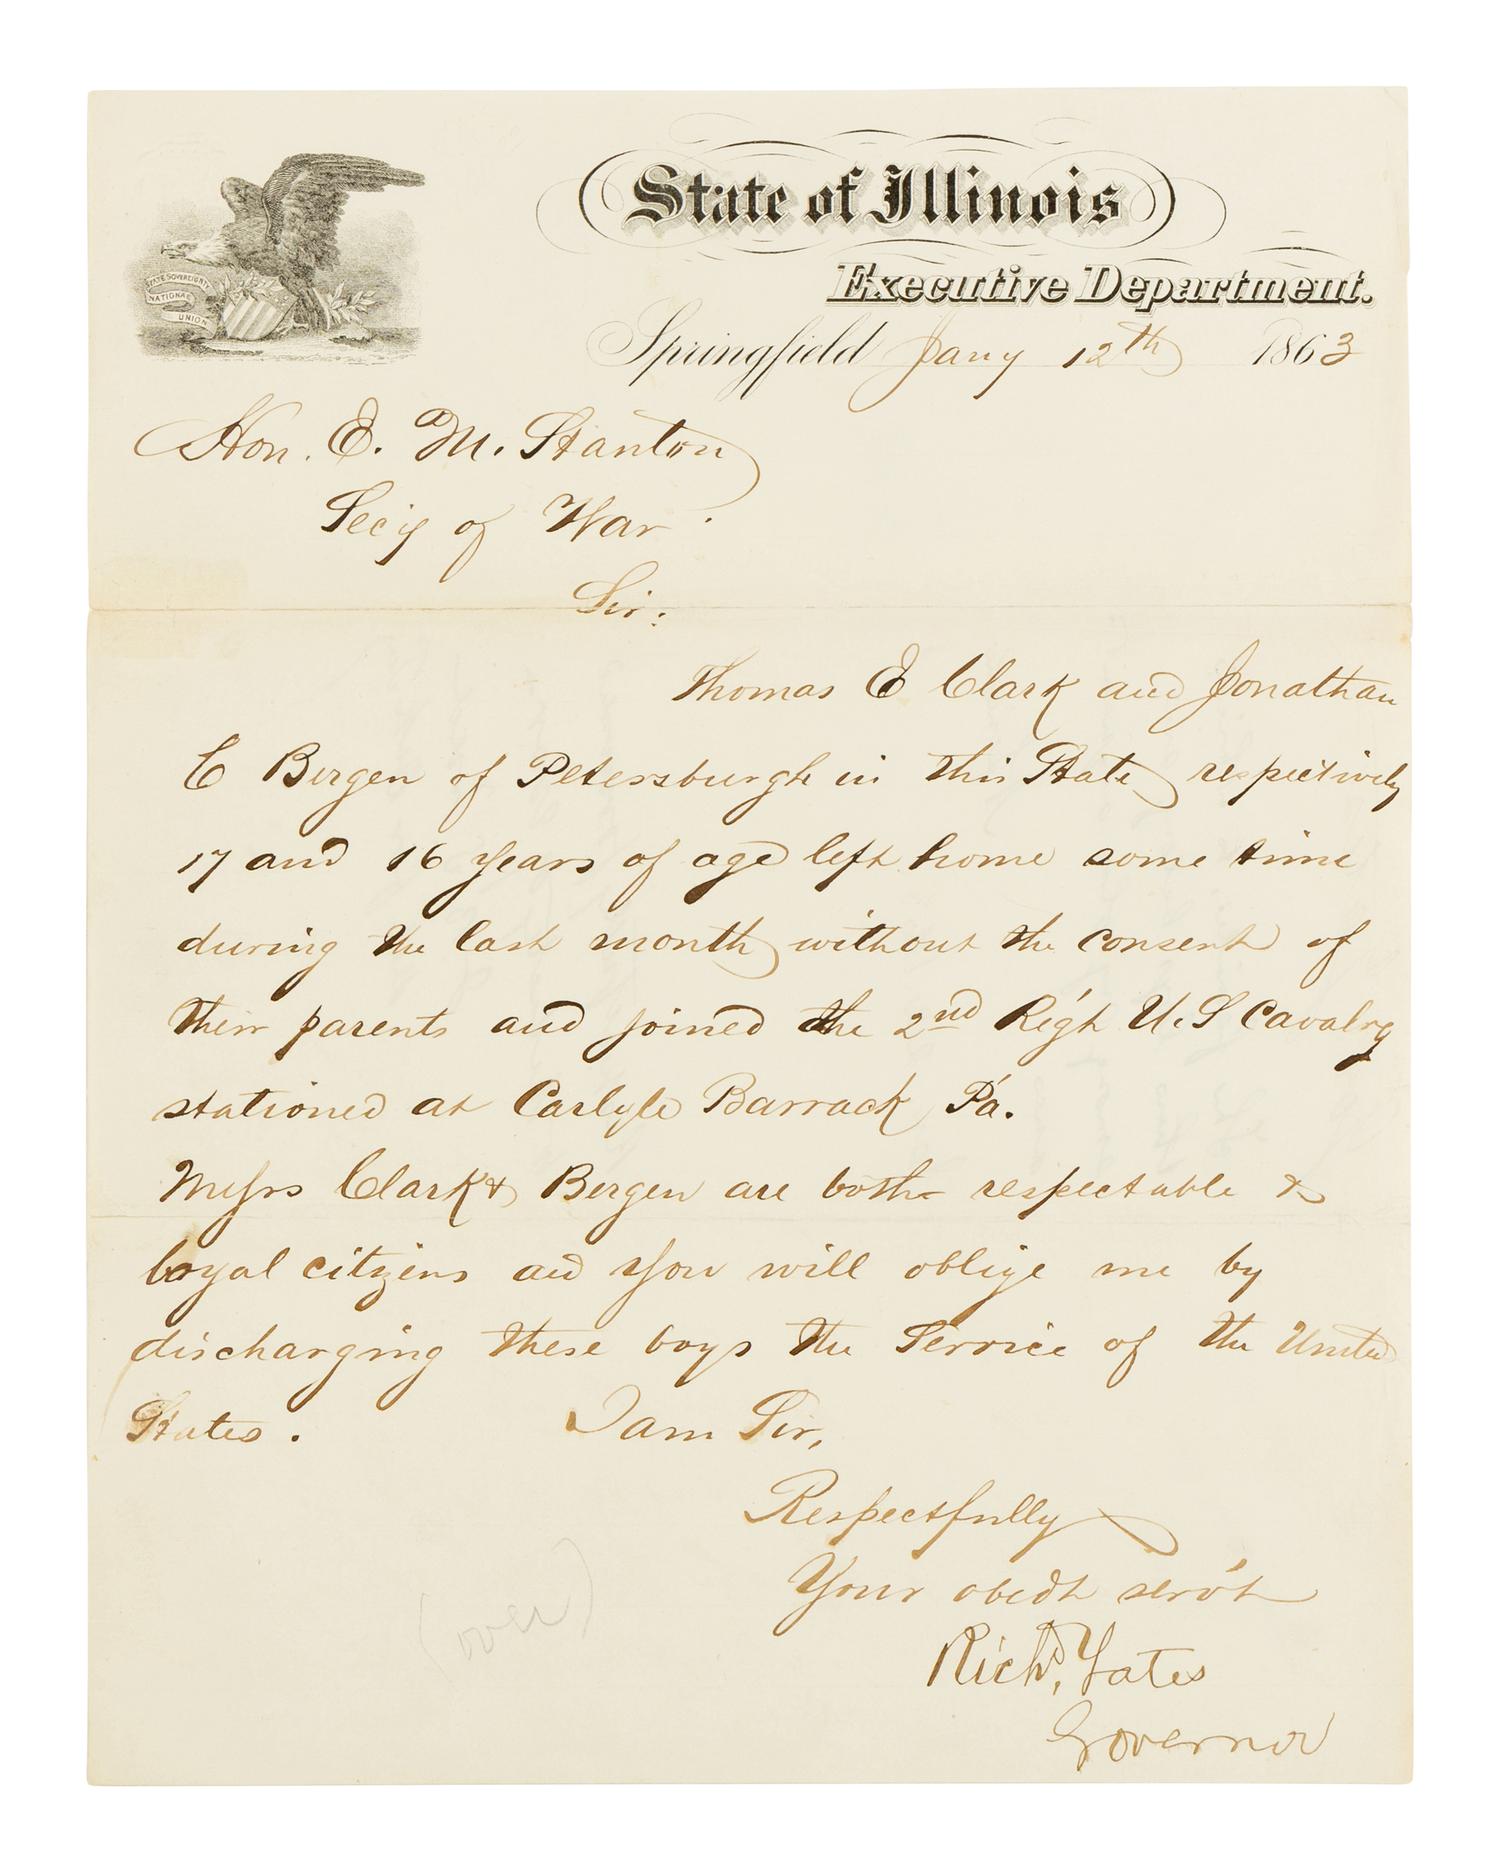 STATE SOVEREIGNTY
NATIONAL
UNION
State of Illinois
Executive Department.
Springfield Jany 12th 1863
Hon. E. M. Stanton
Sec'y of War.
Sir:
Thomas E Clark and Jonathan
C Bergen of Petersburgh in this State respectively
17 and 16 years of age left home some time
during the last month without the consent of
their parents and joined the 2nd Reg't U.S Cavalry
stationed at Carlyle Barrack Pa.
Messrs Clark & Bergen are both respectable &
loyal citizens and you will oblige me by
discharging these boys the Service of the United
States. I am Sir,
Respectfully
Your obedt serv't
Richd, Yates
Governor
(over)